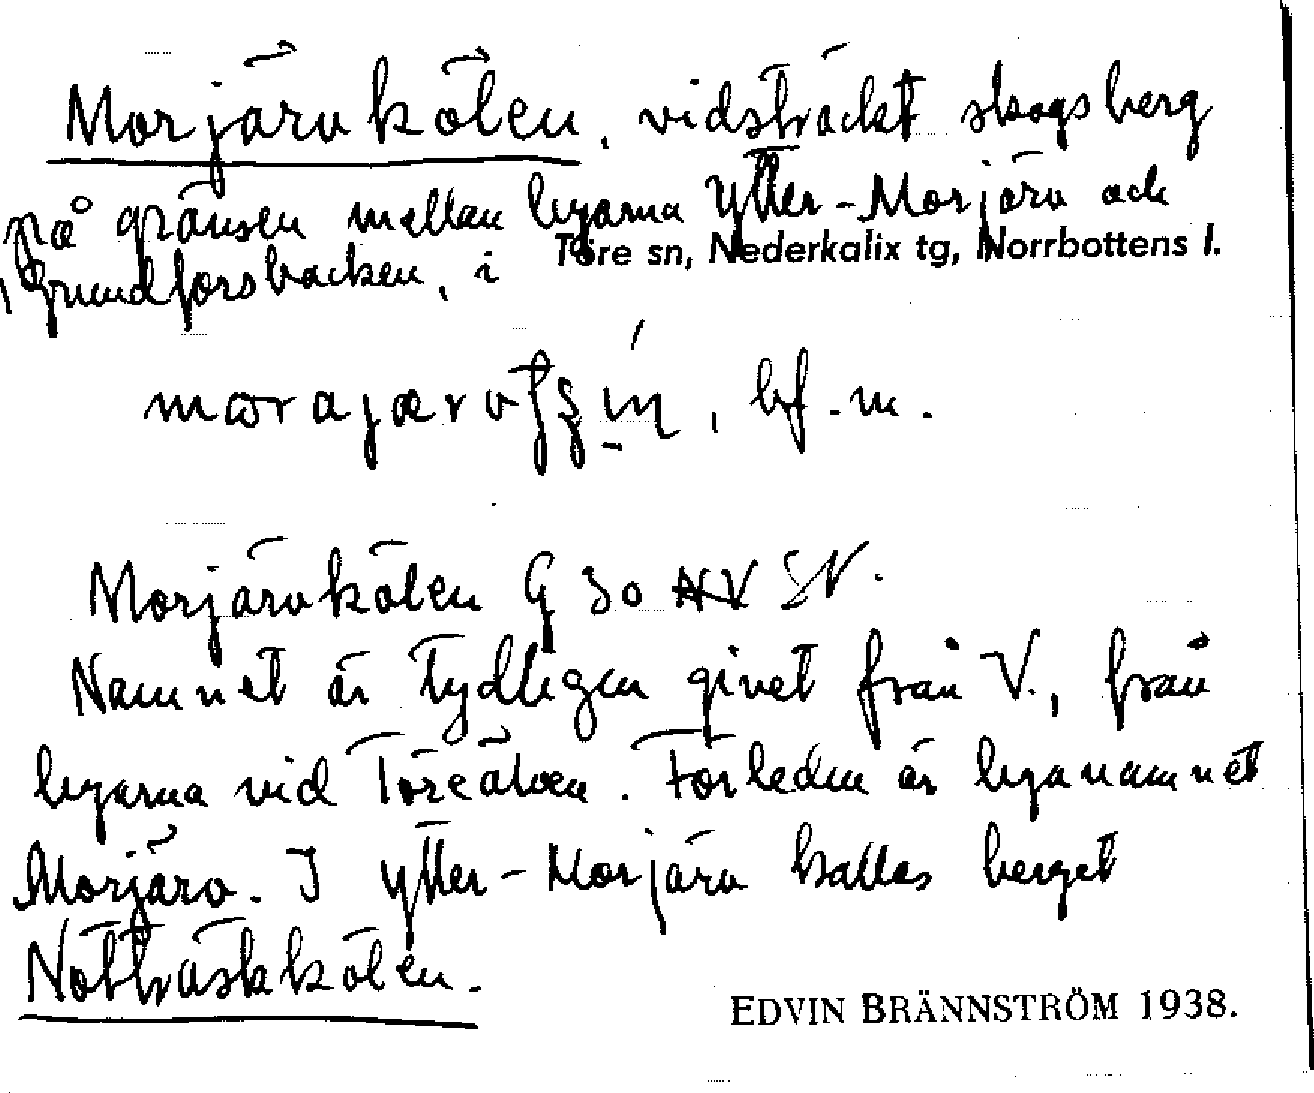 Morjärvkölen, vidsträckt skogsberg
på gränsen mellan byarna Ytter-Morjärv och
Grundforsbacken, i Töre sn, Nederkalix tg, Norrbottens l.
bf. m.
Morjärvkölen G 30 NV SV.
Namnet är tydligen givet från V., från
byarna vid Töreälven. Förleden är bynamnet
Morjärv. I Ytter-Morjärv kallas berget
Nötträskkölen.
EDVIN BRÄNNSTRÖM 1938.